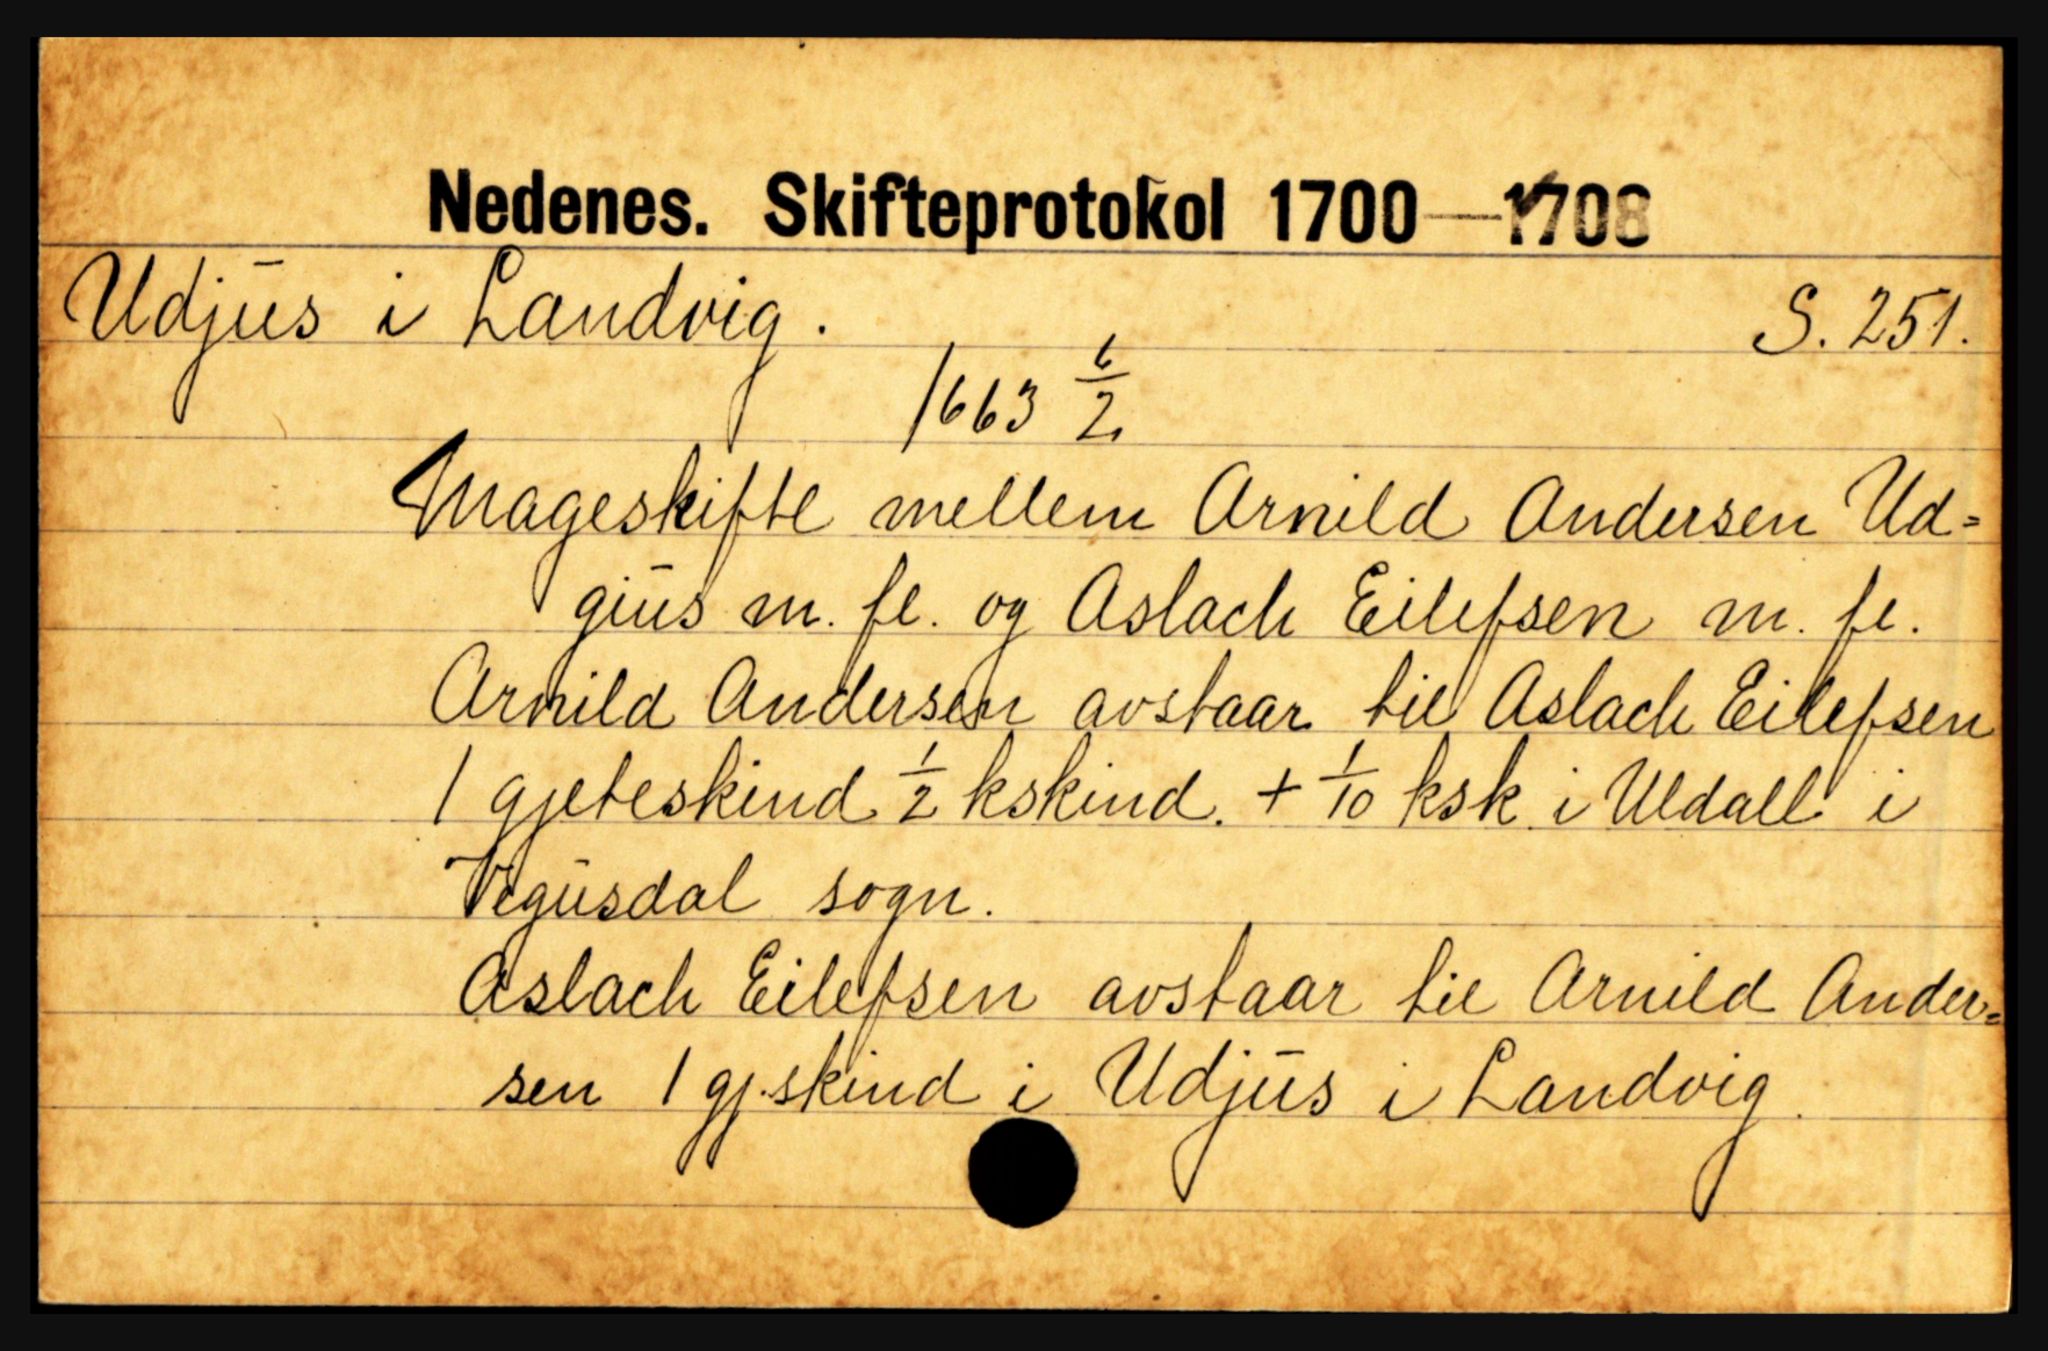 Nedenes. Skifteprotokol 1700—1708
Udjūs i Landvig. S. 251.
1663 6/2
Mageskifte mellem Arnild Andersen Ud=
giūs m. fl. og Aslach Eilefsen m. fl.
Arnild Andersen avstaar til Aslach Eilefsen
1 gjeteskind 1/2 kskind. + 1/10 ksk i Uldall i
Vegūsdal sogn.
Aslach Eilefsen avstaar til Arnild Ander=
sen 1 gj.skind i Udjūs i Landvig.